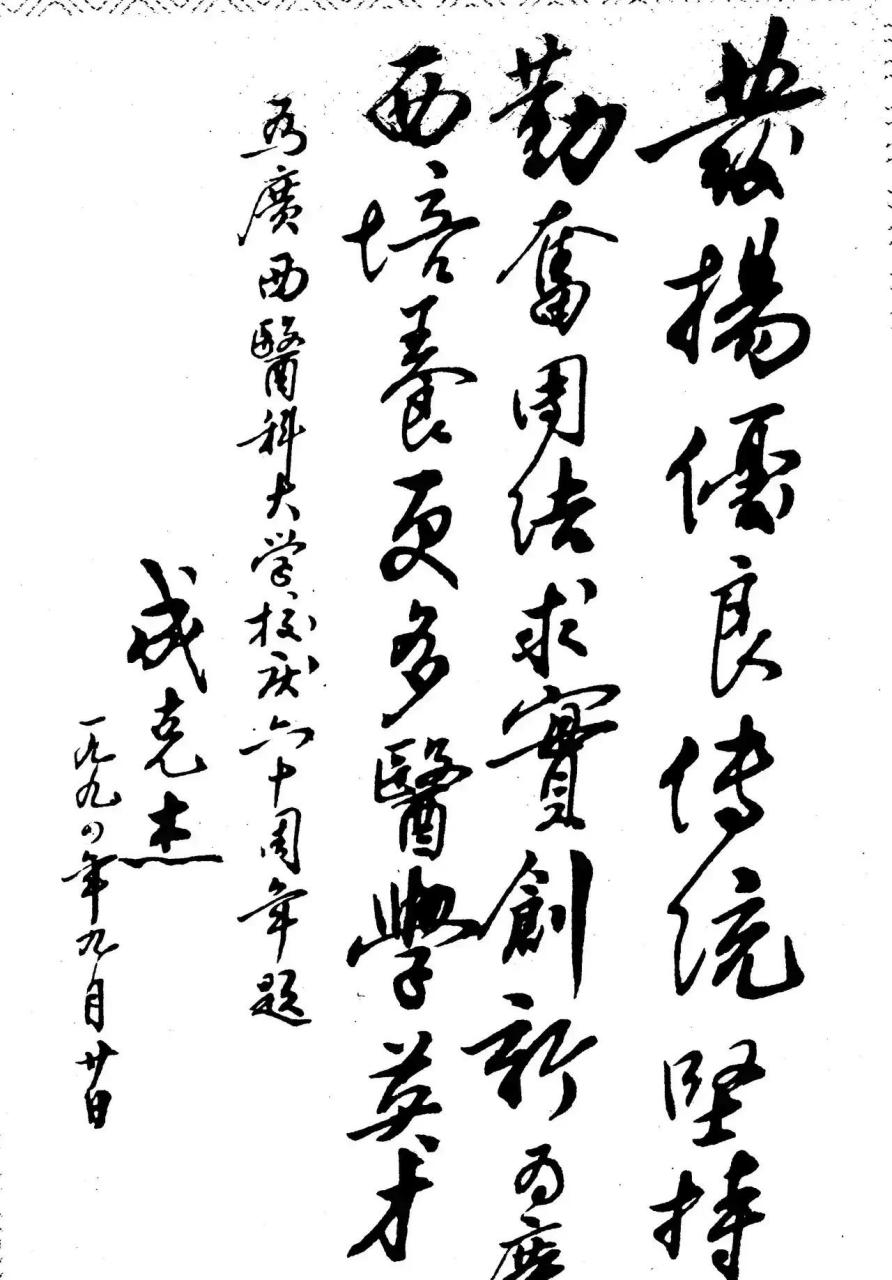 發揚優良傳統堅持
勤奮團结求實創新为廣
西培養更多醫學英才
为廣西醫科大学校庆六十周年題
成克杰
一九九四年九月廿日